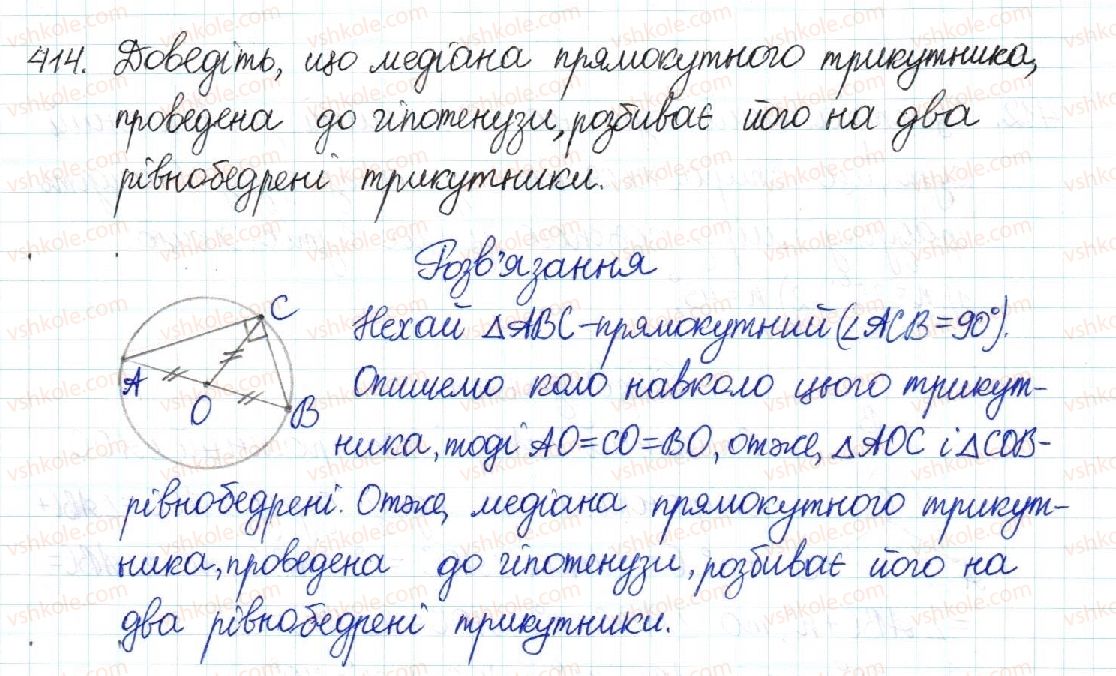 414. Доведіть, що медіана прямокутного трикутника,
проведена до гіпотенузи, розбиває його на два
рівнобедрені трикутники.
Розв'язання
Нехай △ABC-прямокутний (∠ACB=90°).
Опишемо коло навколо цього трикут-
ника, тоді AO=CO=BO, отже, △AOC і △COB-
рівнобедрені. Отже, медіана прямокутного трикут-
ника, проведена до гіпотенузи, розбиває його на
два рівнобедрені трикутники.
C
A
O
B
vshkole.com